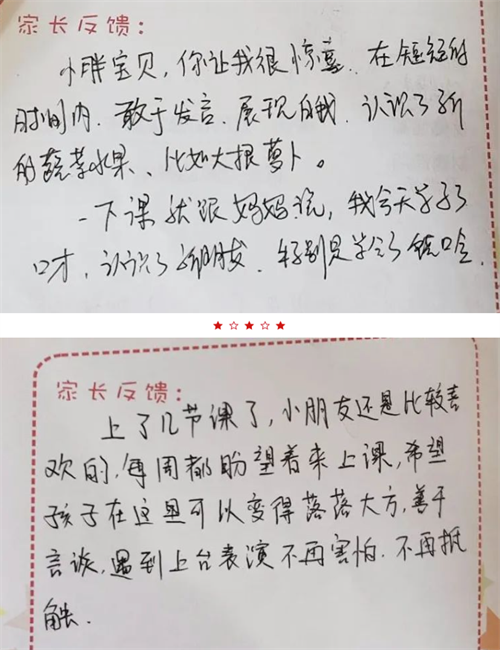 家长反馈：
小胖宝贝，你让我很惊喜．在短短的
时间内．敢于发言．展现自我．认识了新
的蔬菜水果、比如大根萝卜。
一下课就跟妈妈说，我今天学了
口才，认识了新朋友．特别是学会了
家长反馈：
上了几节课了，小朋友还是比较喜
欢的，每周都盼望着来上课，希望
孩子在这里可以变得落落大方，善于
言谈，遇到上台表演不再害怕．不再抵
触．